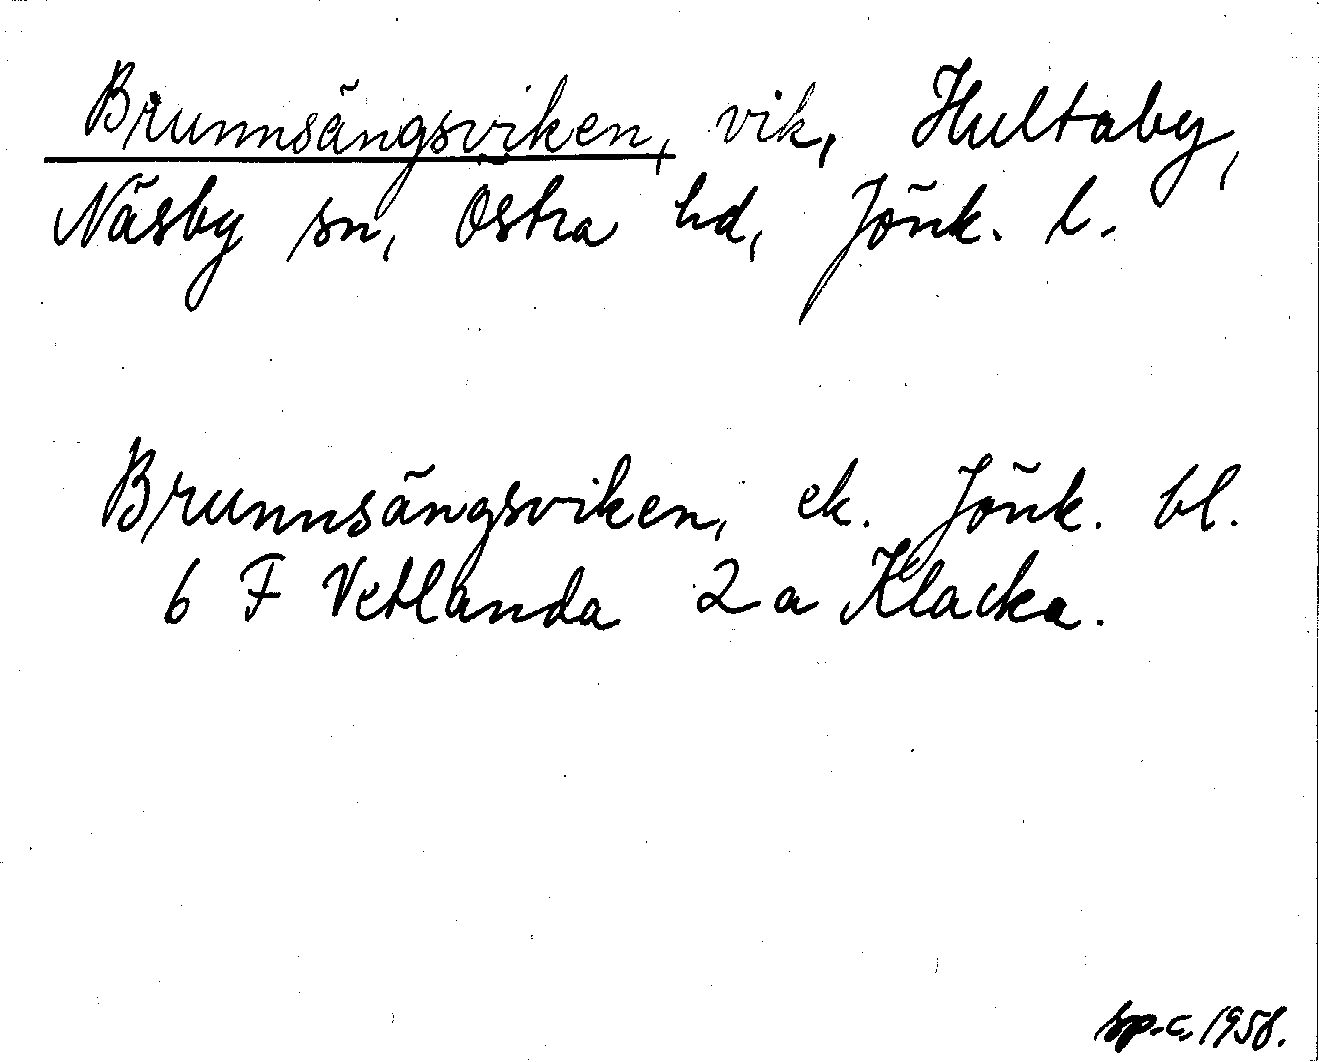 Brunnsängsviken, vik, Hultaby,
Näsby sn, Östra hd, Jönk. l.
Brunnsängsviken, ek. Jönk. bl.
6 F Vetlanda 2 a Klacka.
sp.c. 1958.